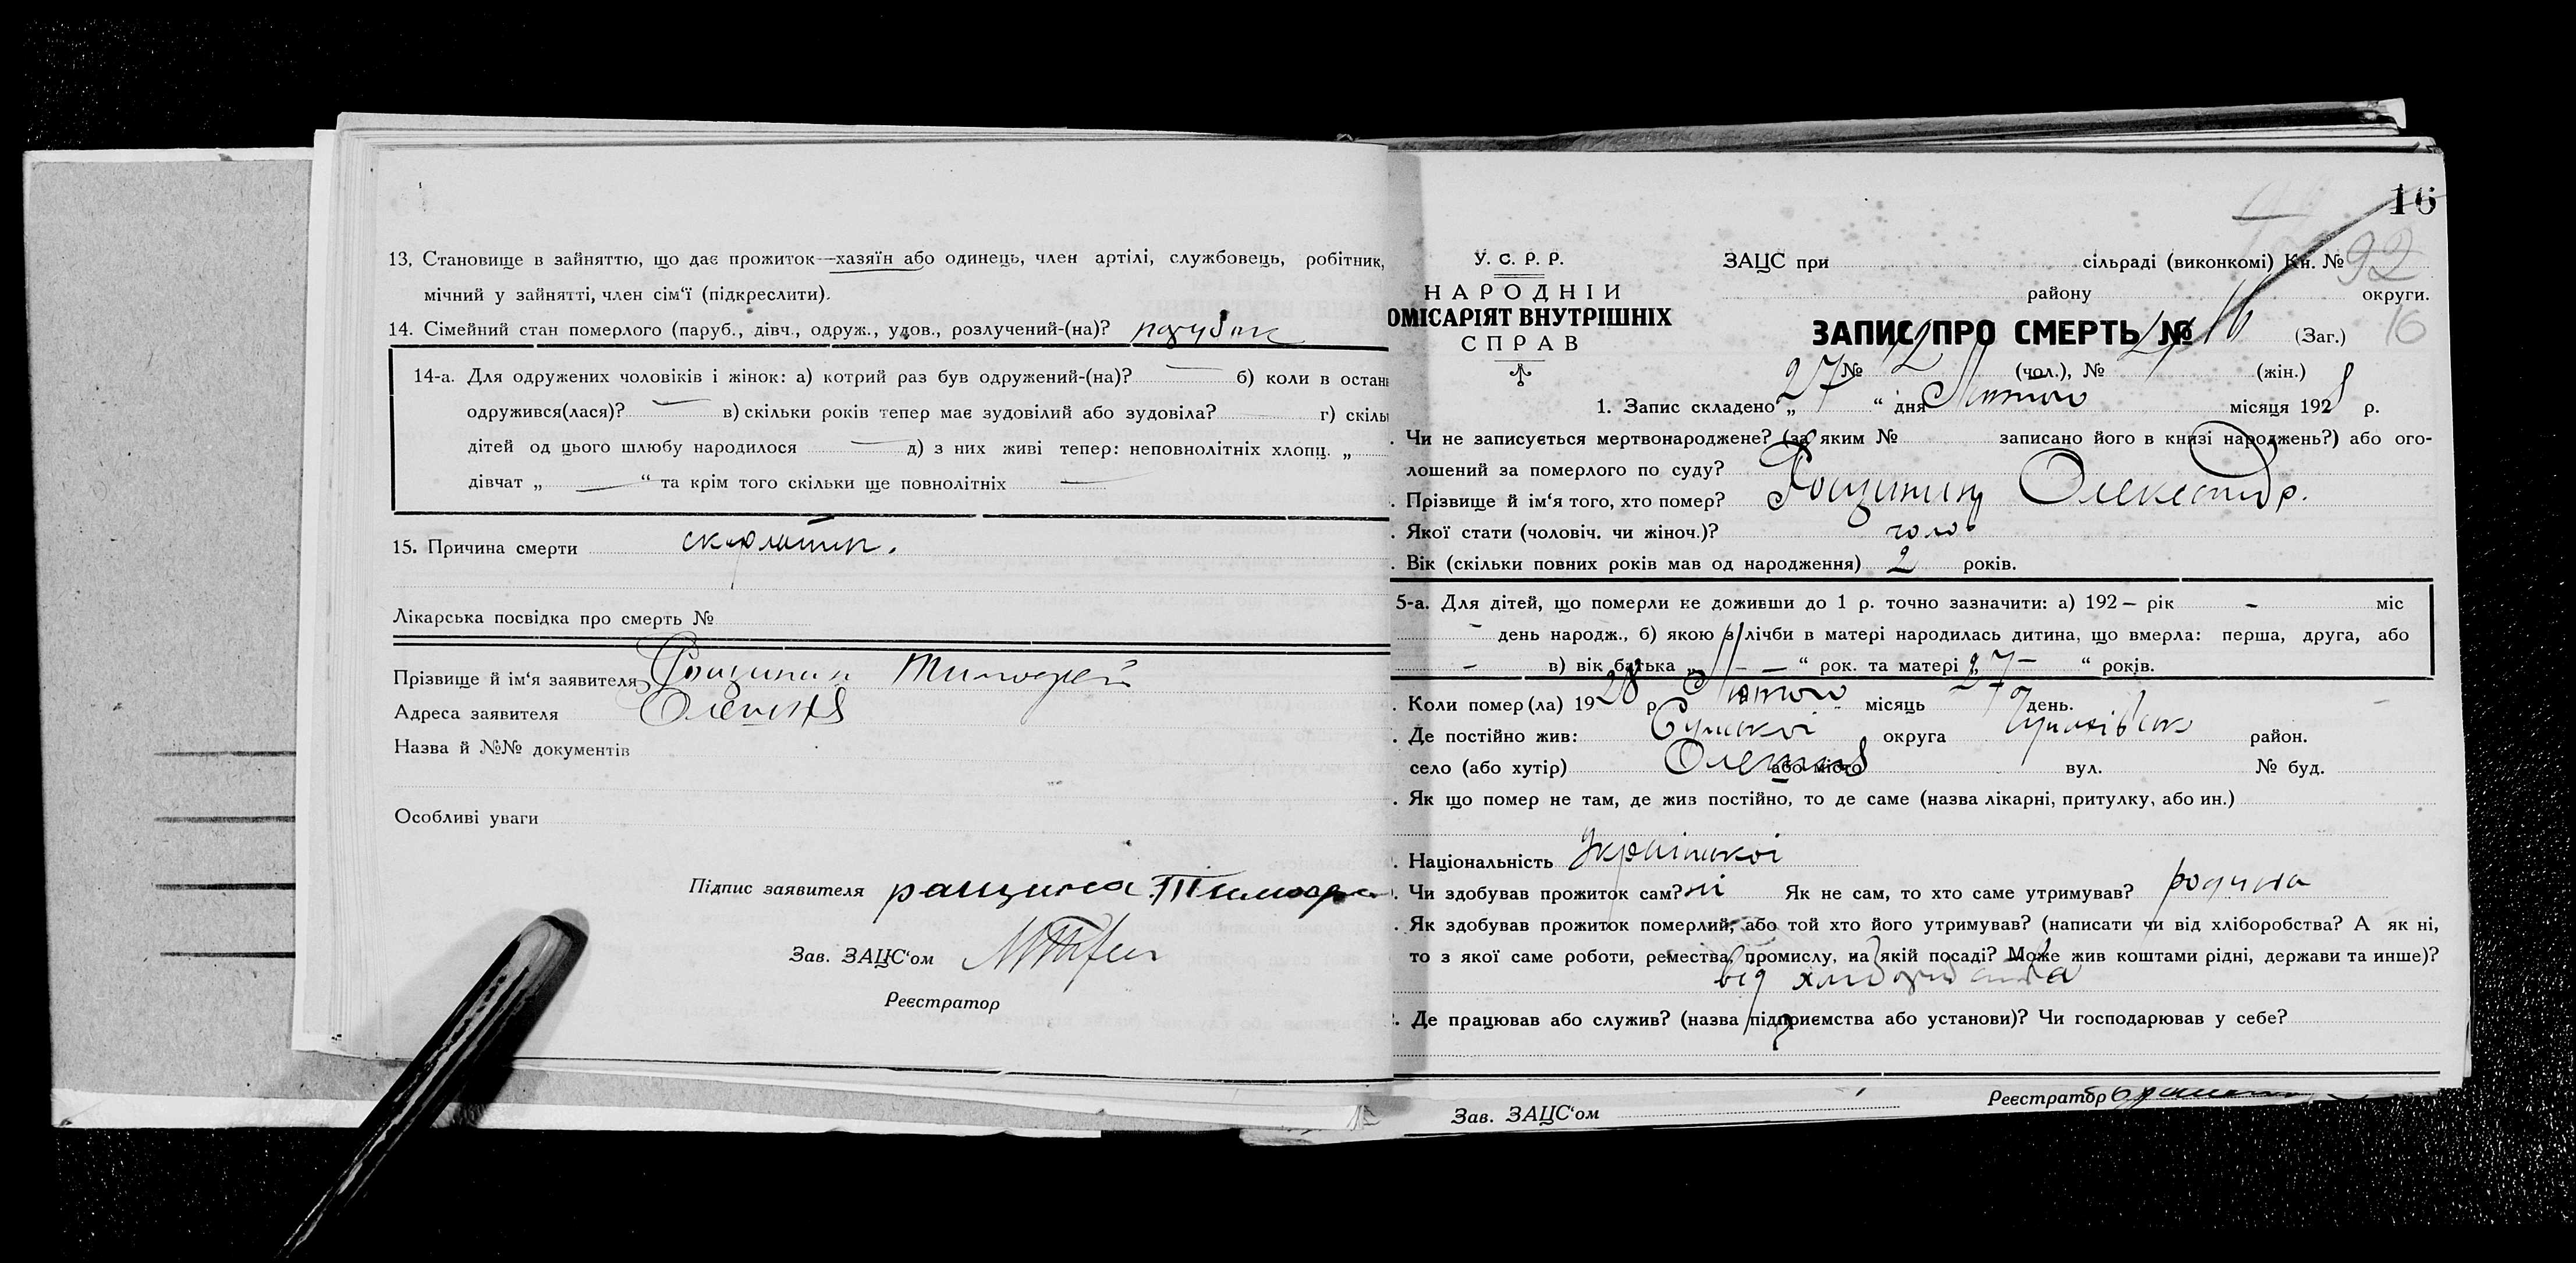 13. Становище в зайняттю, що дає прожиток—хазяїн або одинець, член артілі, службовець, робітник,
мічний у зайнятті, член сім'ї (підкреслити).
14. Сімейний стан померлого (паруб., дівч., одруж., удов., розлучений-(на)? парубок
14-а. Для одружених чоловіків і жінок: а) котрий раз був одружений-(на)? — б) коли в остан
одружився(лася)? — в) скільки років тепер має зудовілий або зудовіла? г) скіль
дітей од цього шлюбу народилося — д) з них живі тепер: неповнолітніх хлопц. „
дівчат „ — “ та крім того скільки ще повнолітніх —
15. Причина смерти
Лікарська посвідка про смерть №
Прізвище й ім'я заявителя Тимофей
Адреса заявителя
Назва й №№ документів
Особливі уваги
Підпис заявителя ращина
Зав. ЗАЦС‘ом
Реєстратор
16
У. С. Р. Р.
НАРОДНІЙ
ОМІСАРІЯТ ВНУТРІШНІХ
СПРАВ
ЗАЦС при сільраді (виконкомі) Кн. № 92
району округи.
ЗАПИС ПРО СМЕРТЬ № 16 (Заг.) 16
№ 12 (чол.), № 4 (жін.)
1. Запис складено „ 27 “ дня Лютого місяця 1928 р.
. Чи не записується мертвонароджене? (за яким № записано його в книзі народжень?) або ого-
лошений за померлого по суду?
. Прізвище й ім'я того, хто помер? Олександр.
. Якої стати (чоловіч. чи жіноч.)? чолов
. Вік (скільки повних років мав од народження) 2 років.
5-а. Для дітей, що померли не доживши до 1 р. точно зазначити: а) 192 – рік – міс
– день народж., б) якою з лічби в матері народилась дитина, що вмерла: перша, друга, або
– в) вік батька „ – — “ рок. та матері „ – “ років.
. Коли помер(ла) 1928 р Лютого місяць 27 день.
. Де постійно жив: Сумської округа район.
село (або хутір) або місто вул. № буд.
. Як що помер не там, де жив постійно, то де саме (назва лікарні, притулку, або ин.)
. Національність Української
. Чи здобував прожиток сам? ні Як не сам, то хто саме утримував? родина
. Як здобував прожиток померлий, або той хто його утримував? (написати чи від хліборобства? А як ні,
то з якої саме роботи, ремества, промислу, на якій посаді? Може жив коштами рідні, держави та инше)?
від хліборобства
. Де працював або служив? (назва підприємства або установи)? Чи господарював у себе?
Зав. ЗАЦС‘ом Реєстратор